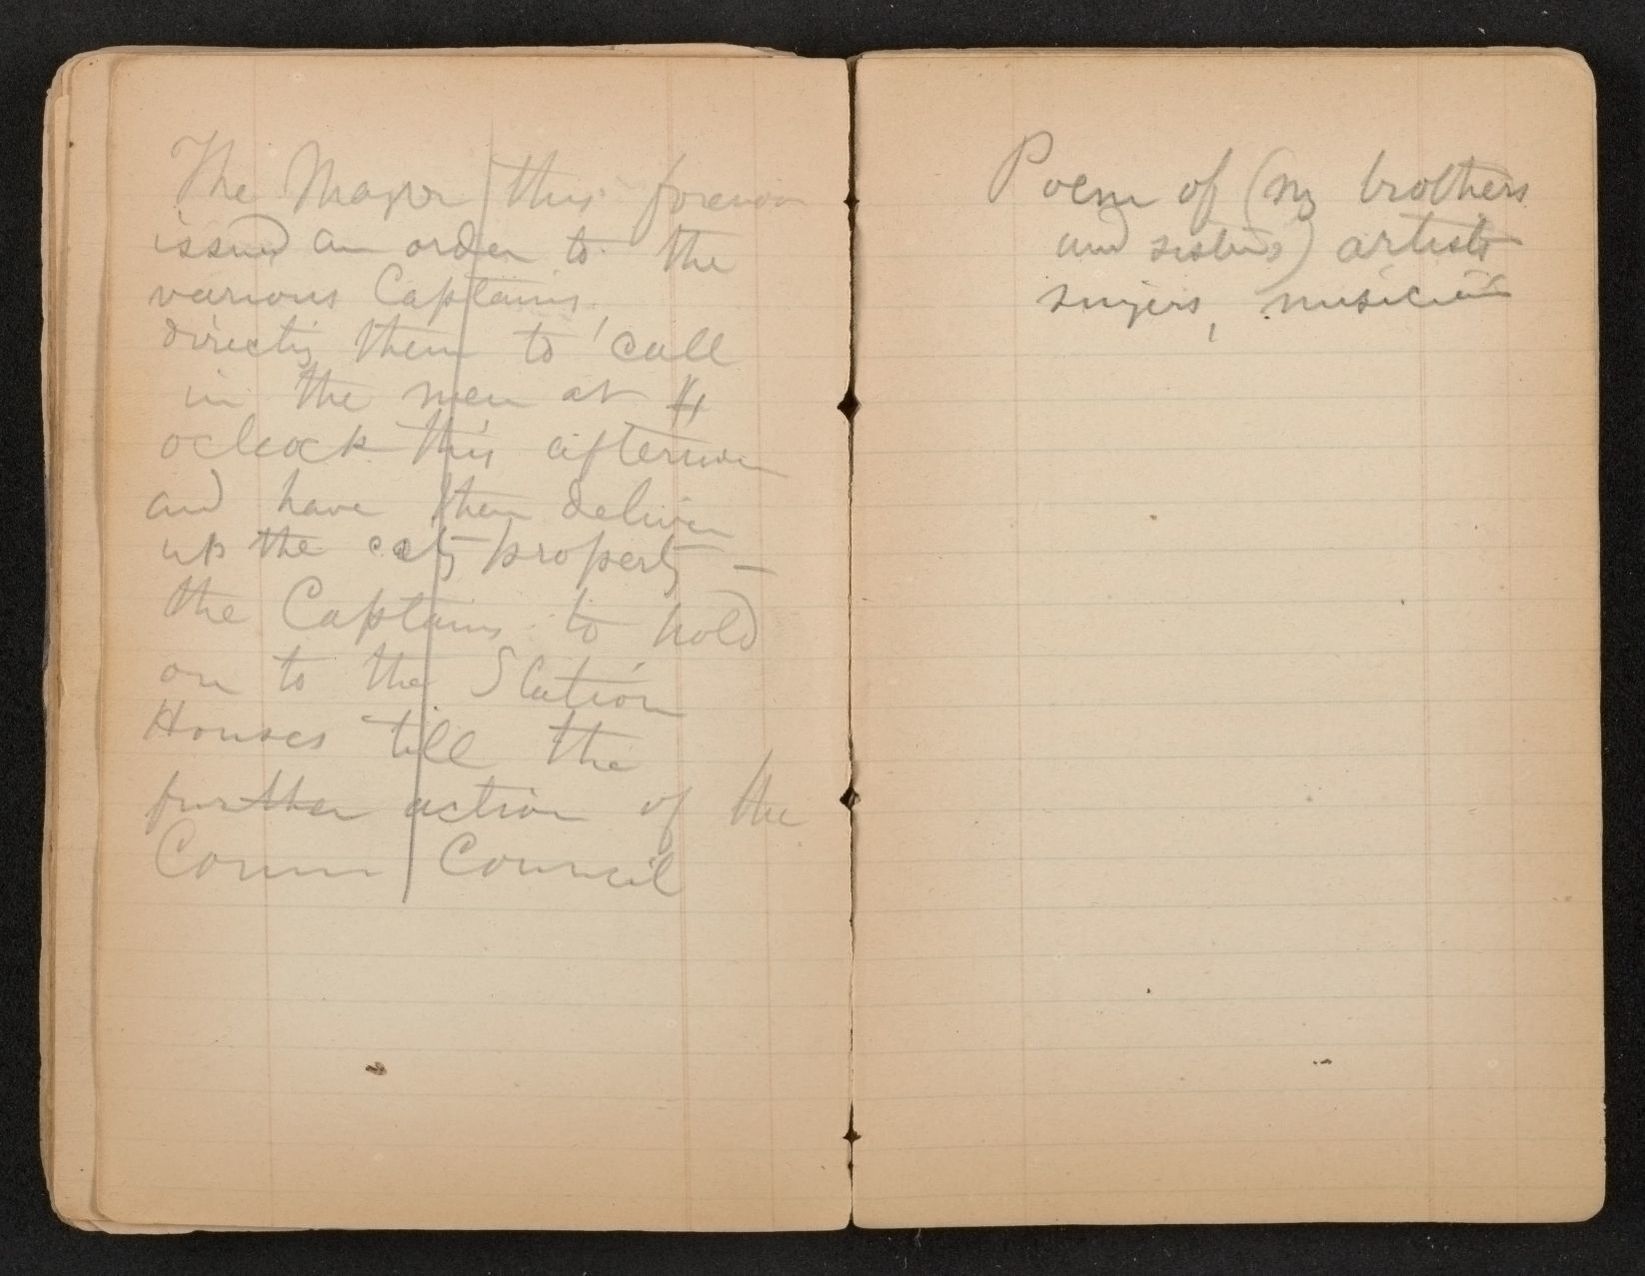 The Mayor this forenoon
issued an order to the
various Captains
directing them to call
in the men at 4
oclock this afternoon
and have them deliver
up the city property –
the Captains to hold
on to the Station
Houses till the
further action of the
Comm Council
Poem of (my brothers
and sisters) artists
singers, musicians